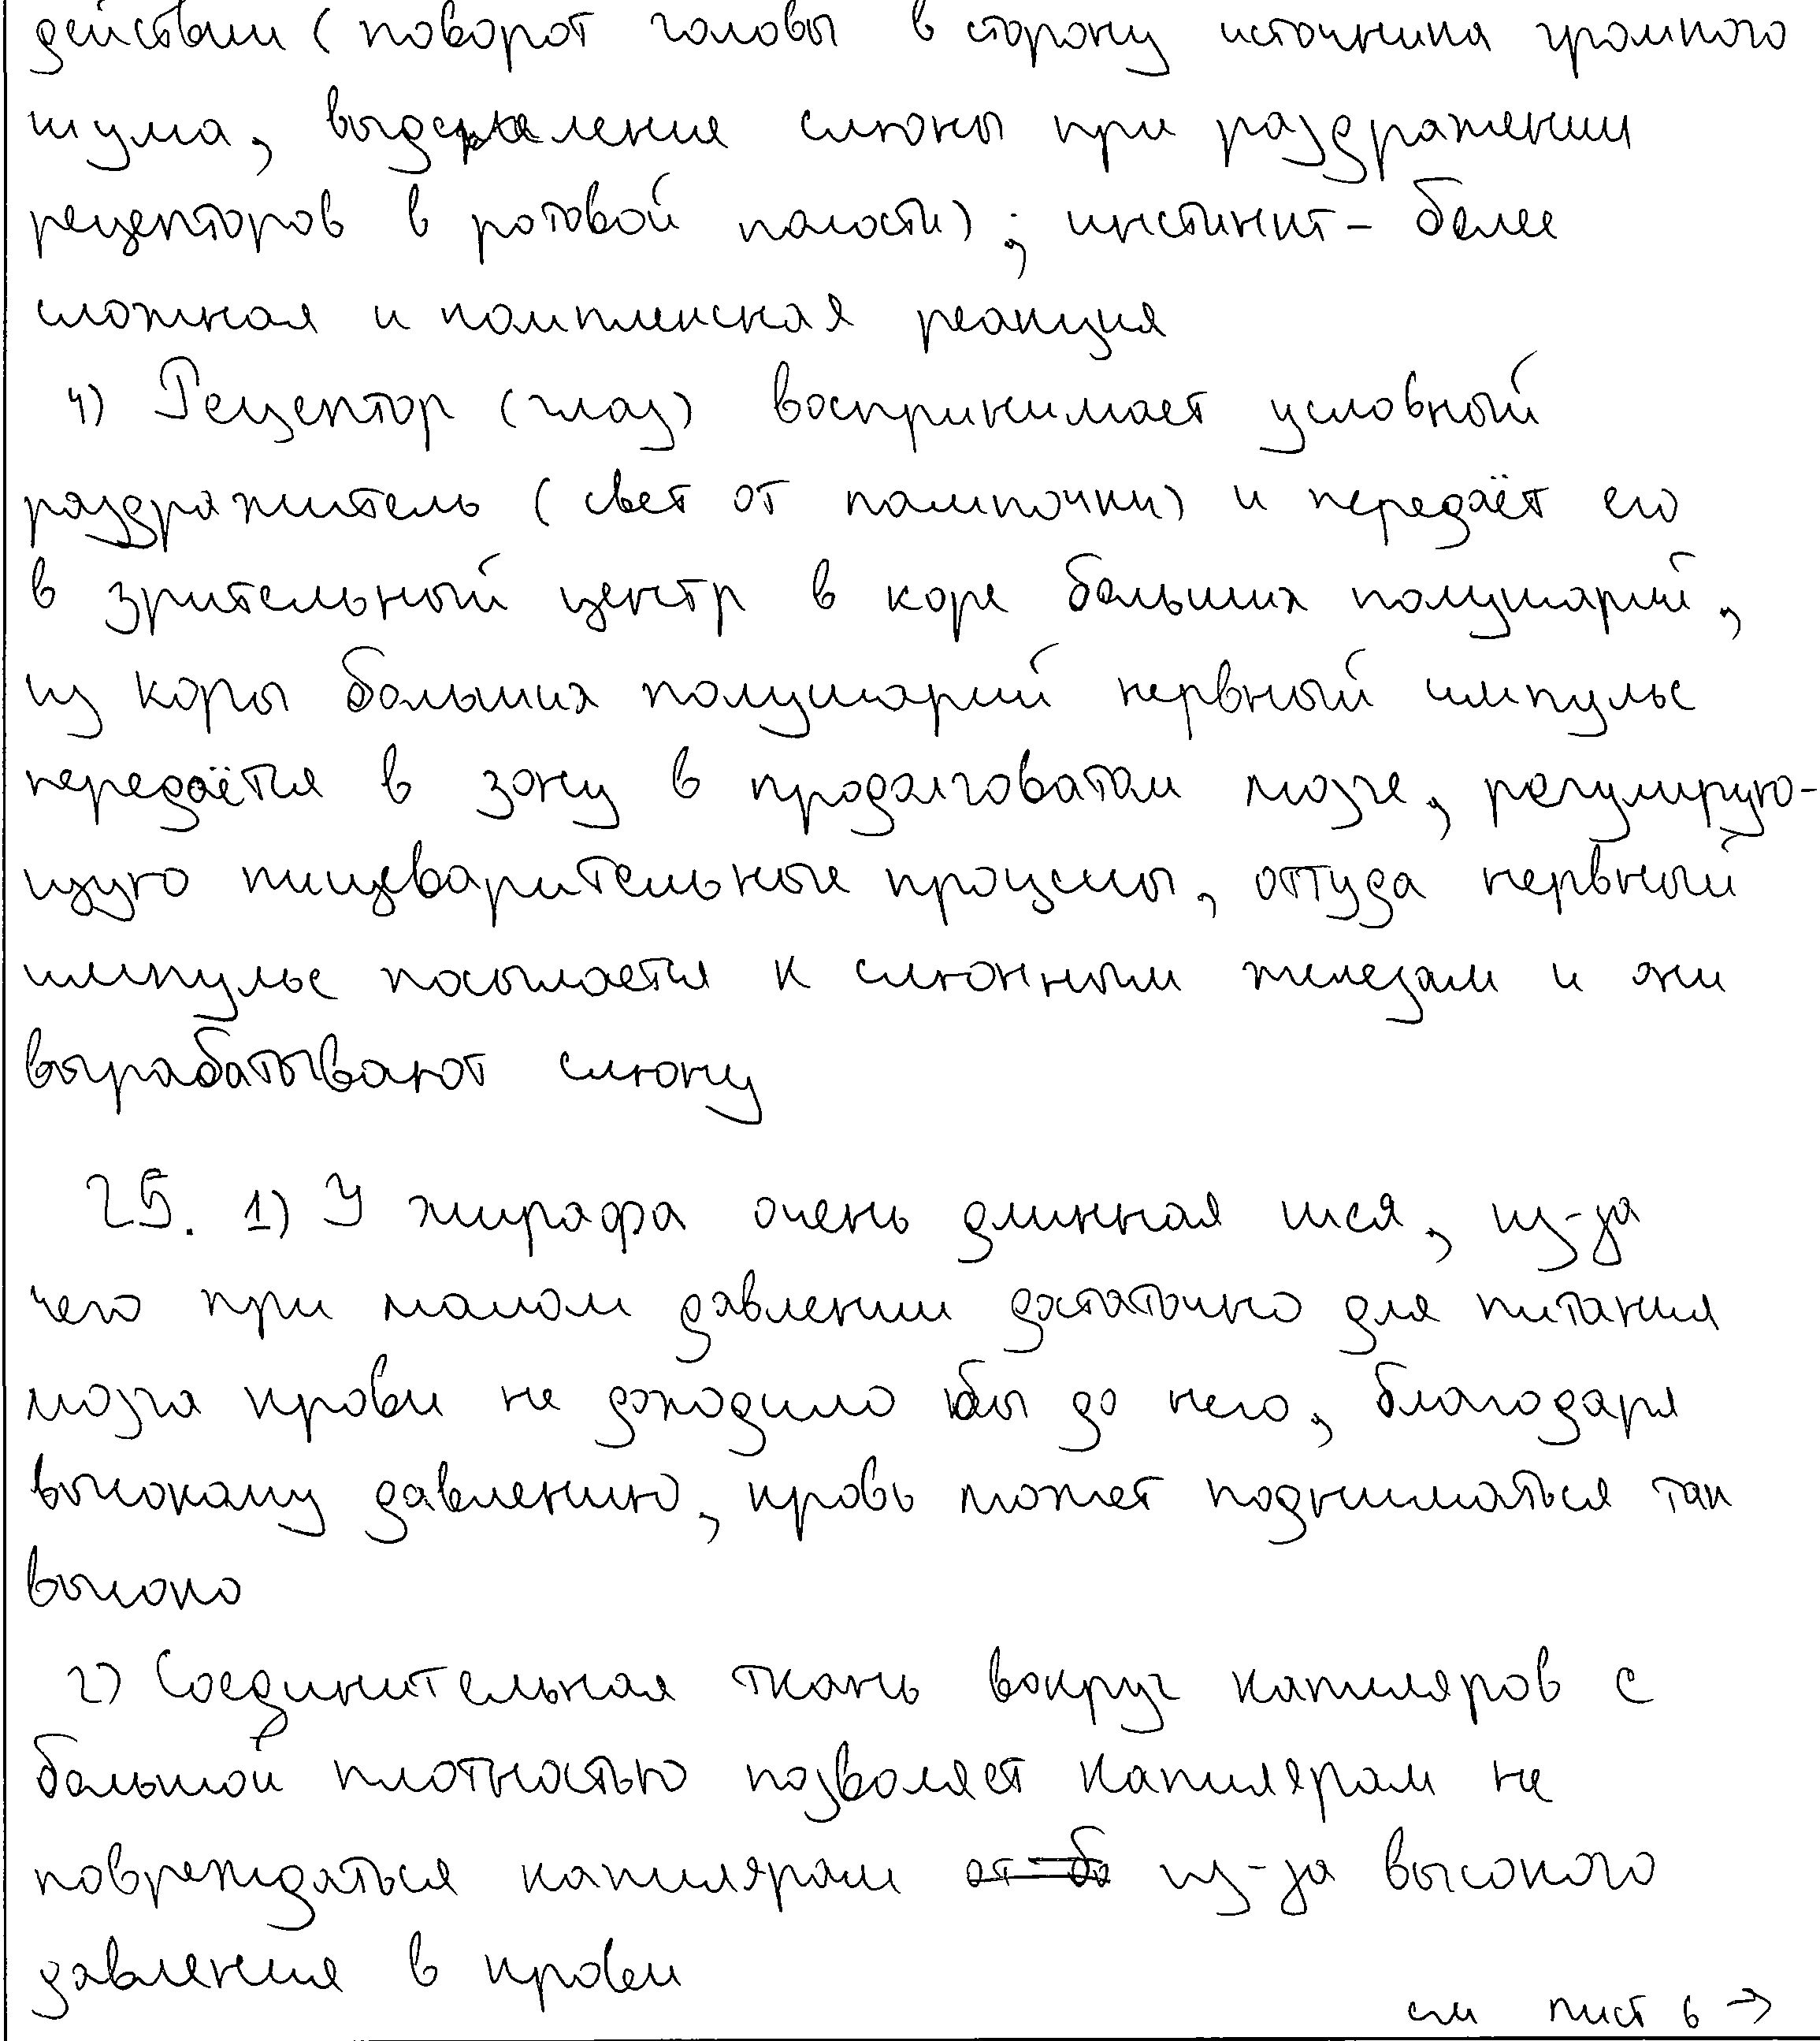 действии (поворот головы в сторону источника громкого
шума, выделение слюны при раздражении
рецепторов в ротовой полости); инстинкт - более
сложная и комплексная реакция
4) Рецептор (глаз) воспринимает условный
раздражитель (свет от лампочки) и передаёт его
в зрительный центр в коре больших полушарий,
из коры больших полушарий нервный импульс
передаётся в зону в продолговатом мозге, регулирую-
щую пищеварительные процессы, оттуда нервный
импульс посылается к слюнным железам и они
вырабатывают слюну
25. 1) У жирафа очень длинная шея, из-за
чего при малом давлении достаточно для питания
мозга крови не доходило бы до него, благодаря
высокому давлению, кровь может подниматься так
высоко
2) Соединительная ткань вокруг капиляров с
большой плотностью позволяет капилярам не
повреждаться капилярам из-за высокого
давления в крови
см лист 6 →